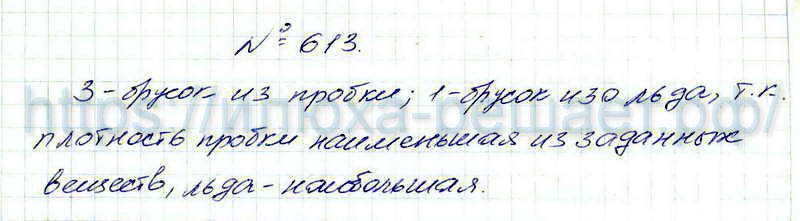 № 613.
3-брусок из пробки; 1-брусок изо льда, т.к.
плотность пробки наименьшая из заданных
веществ, льда-наибольшая.